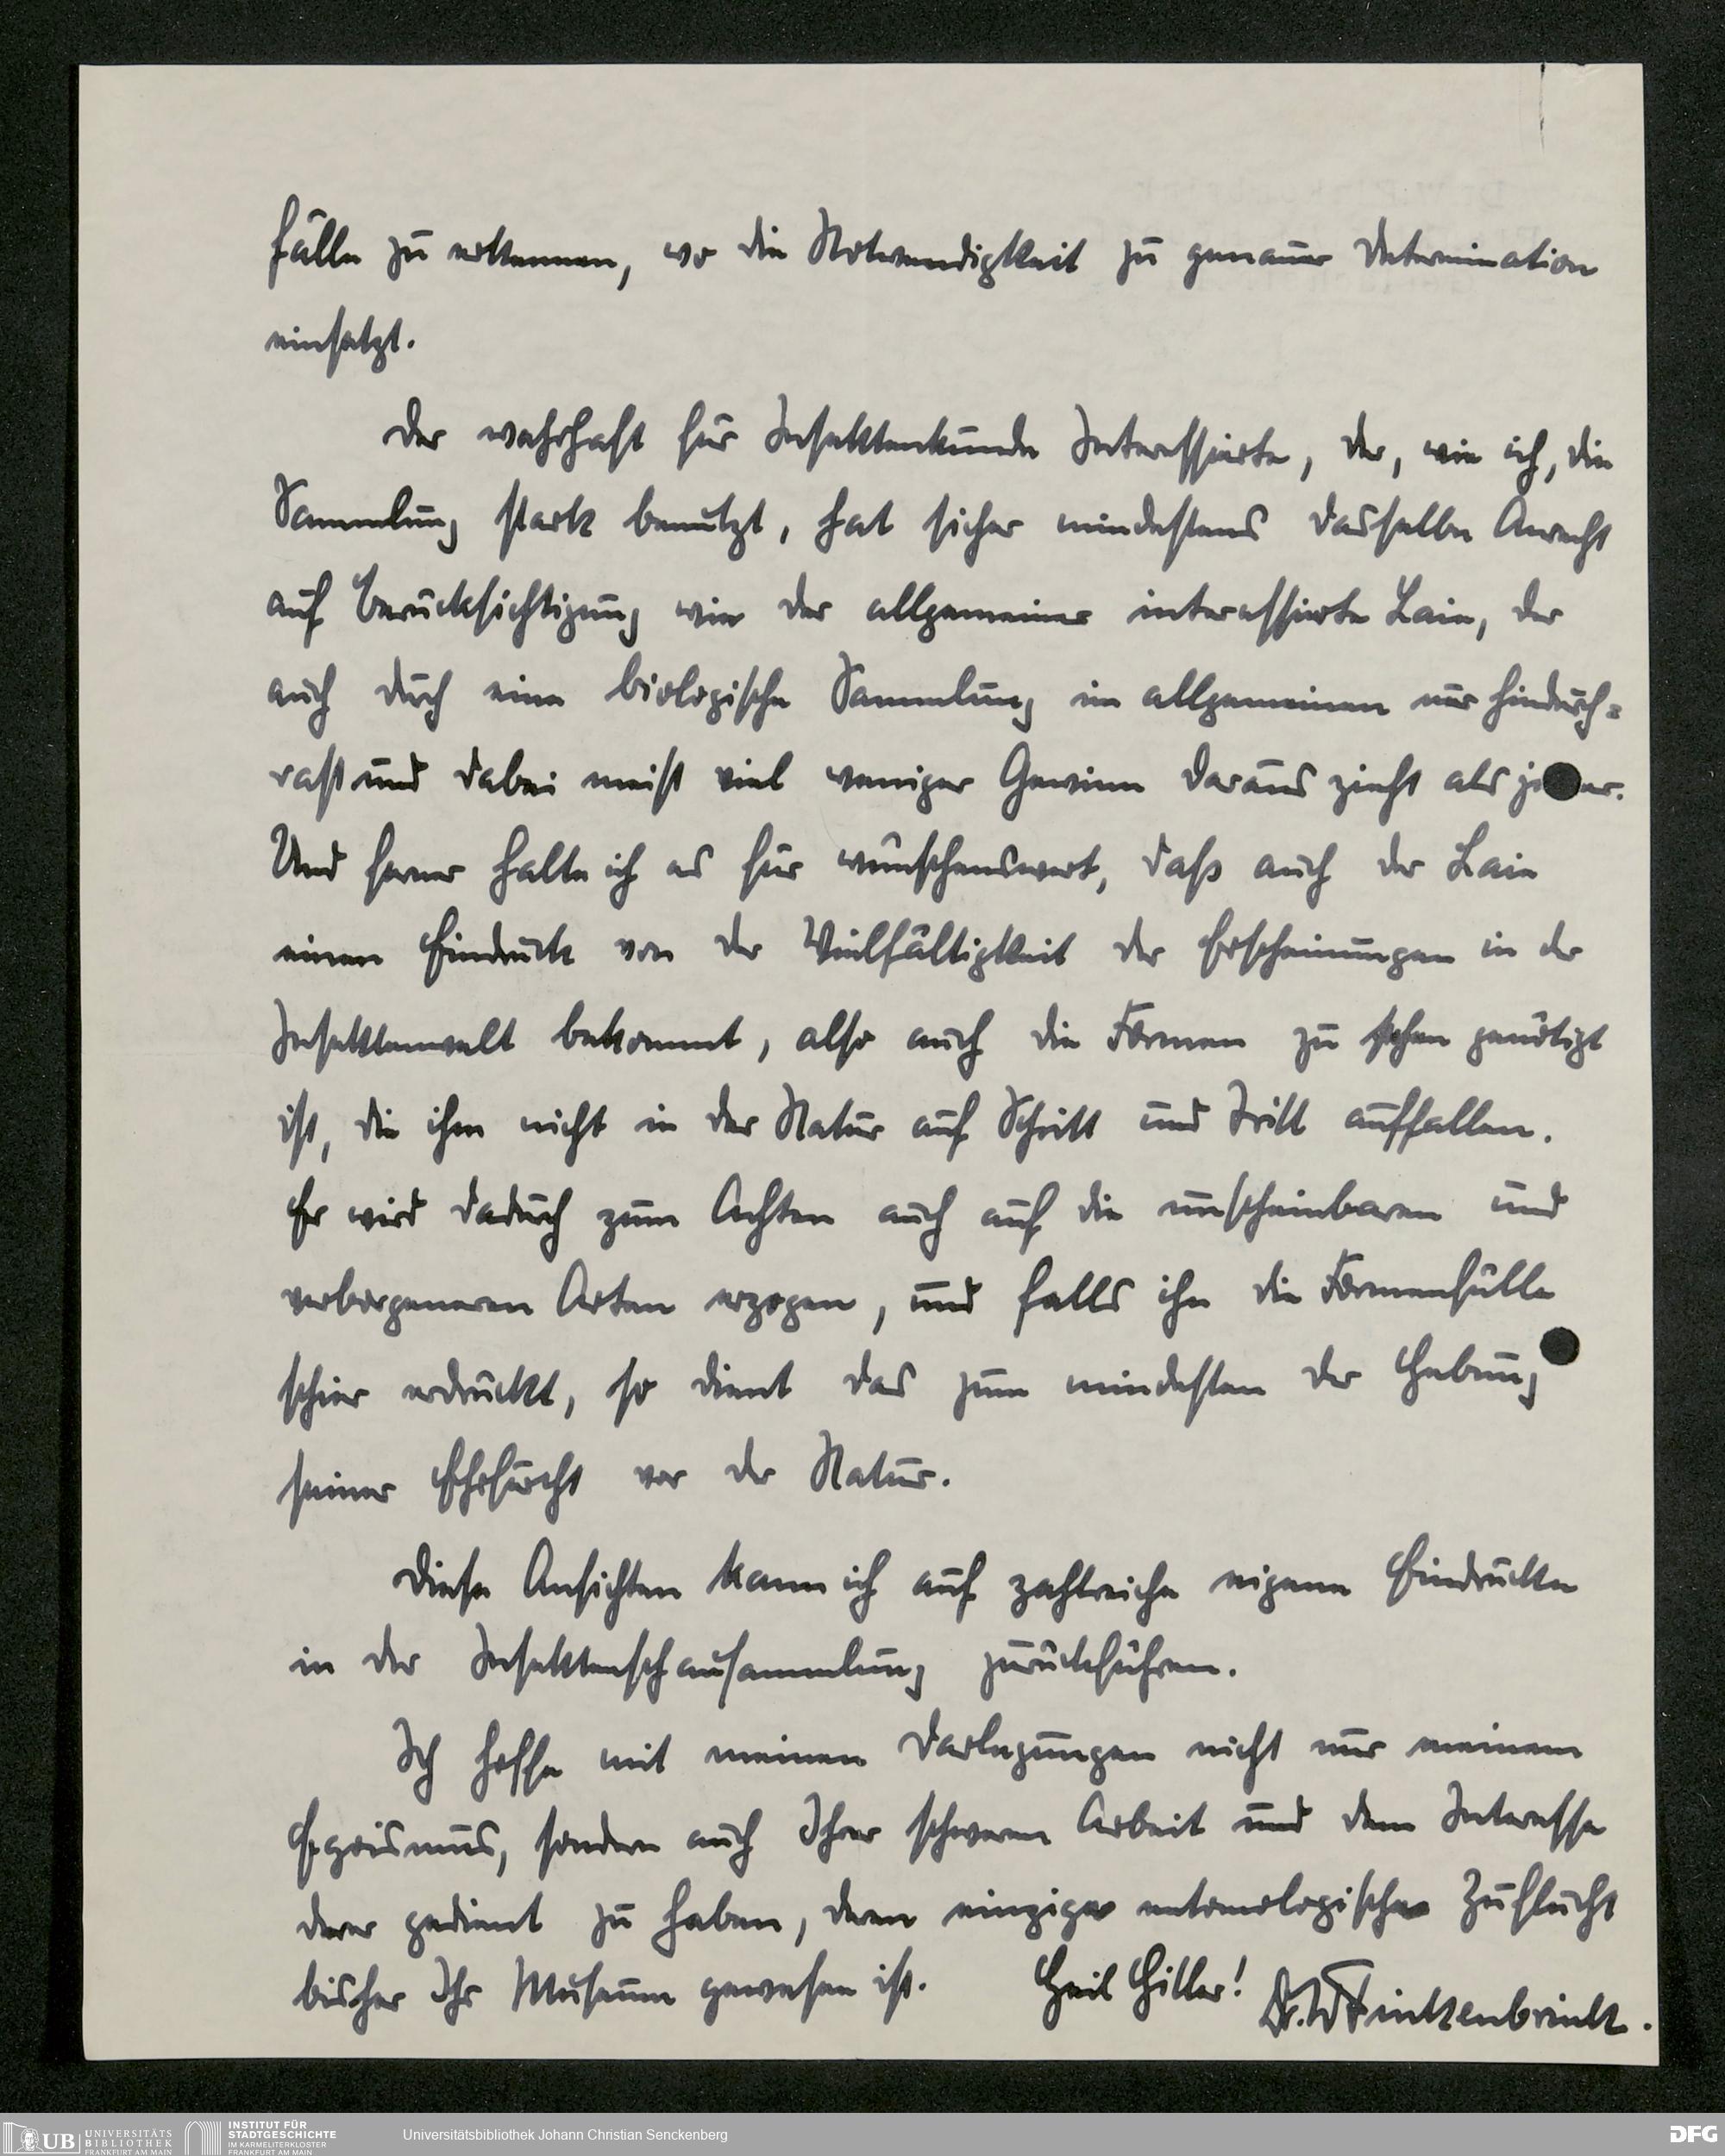 Fälle zu erkennen, wo die Notwendigkeit zu genauer Determination
einsetzt.
Der wahrhaft für Insektenkunde Interessierte, der, wie ich, die
Sammlung stark benutzt, hat sicher mindestens dasselbe Anrecht
auf Berücksichtigung wie der allgemeiner interessierte Laie, der
auch durch eine biologische Sammlung im allgemeinen nur hindurch=
rast und dabei meist viel weniger Gewinn daraus zieht als jener.
Und ferner halte ich es für wünschenswert, daß auch der Laie
einen Eindruck von der Vielfältigkeit der Erscheinungen in der
Insektenwelt bekommt, also auch die Formen zu sehen genötigt
ist, die ihm nicht in der Natur auf Schritt und Tritt auffallen.
Er wird dadurch zum Achten auch auf die unscheinbaren und
verborgeneren Arten erzogen, und falls ihn die Formenfülle
schier erdrückt, so dient das zum mindesten der Hebung
seiner Ehrfurcht vor der Natur.
Diese Ansichten kann ich auf zahlreiche eigene Eindrücke
in der Insektenschausammlung zurückführen.
Ich hoffe mit meinen Darlegungen nicht nur meinem
Egoismus, sondern auch Ihrer schweren Arbeit und dem Interesse
derer gedient zu haben, deren einzige entomologische Zuflucht
bisher Ihr Museum gewesen ist. Heil Hitler! Dr. W Finkenbrink.
UB UNIVERSITÄTS
BIBLIOTHEK
FRANKFURT AM MAIN
INSTITUT FÜR
STADTGESCHICHTE
IM KARMELITERKLOSTER
FRANKFURT AM MAIN
Universitätsbibliothek Johann Christian Senckenberg
DFG